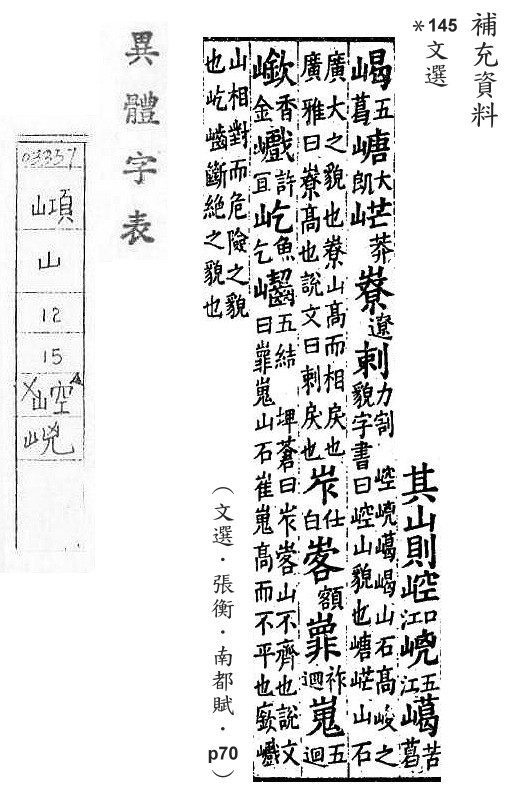 補充資料
*145文選
其山則崆口江㟅五江嶱苦葛
嵑五葛嵣大朗㟐莽嶚遼剌力割崆㟅嶱嵑山石高峻之
貌字書曰崆山貌也嵣㟐山石
廣大之貌也嶚山高而相戾也
廣雅曰嶚高也說文曰剌戾也岝仕白峉額嶵祚迴嵬五迴
嶔香金巇許宜屹魚乞㠋五結埤蒼曰岝峉山不齊也說文
曰嶵嵬山石崔嵬高而不平也嶔巇
山相對而危險之貌
也屹㠋斷絕之貌也
(文選．張衡．南都賦．p70)
異體字表
03337
山
12
15
崆
㟅